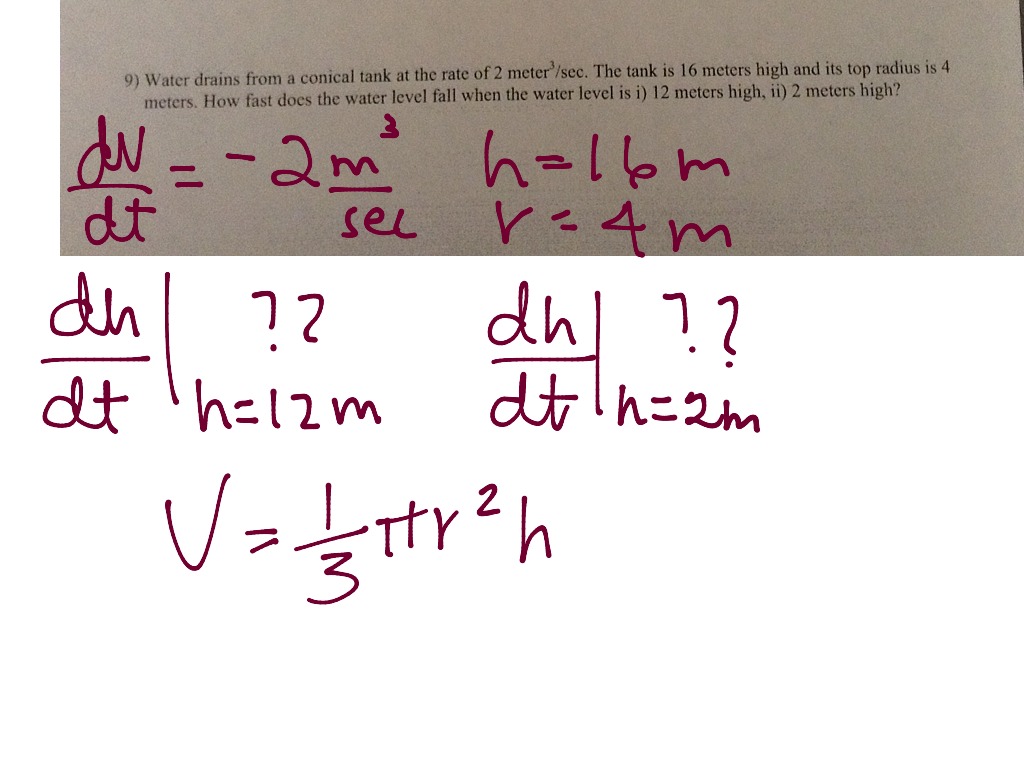 9) Water drains from a conical tank at the rate of 2 meter³/sec. The tank is 16 meters high and its top radius is 4
meters. How fast does the water level fall when the water level is i) 12 meters high, ii) 2 meters high?
dV/dt = -2 m³/sec h = 16 m
r = 4 m
dh/dt | h=12m ?? dh/dt | h=2m ??
V = 1/3 πr²h